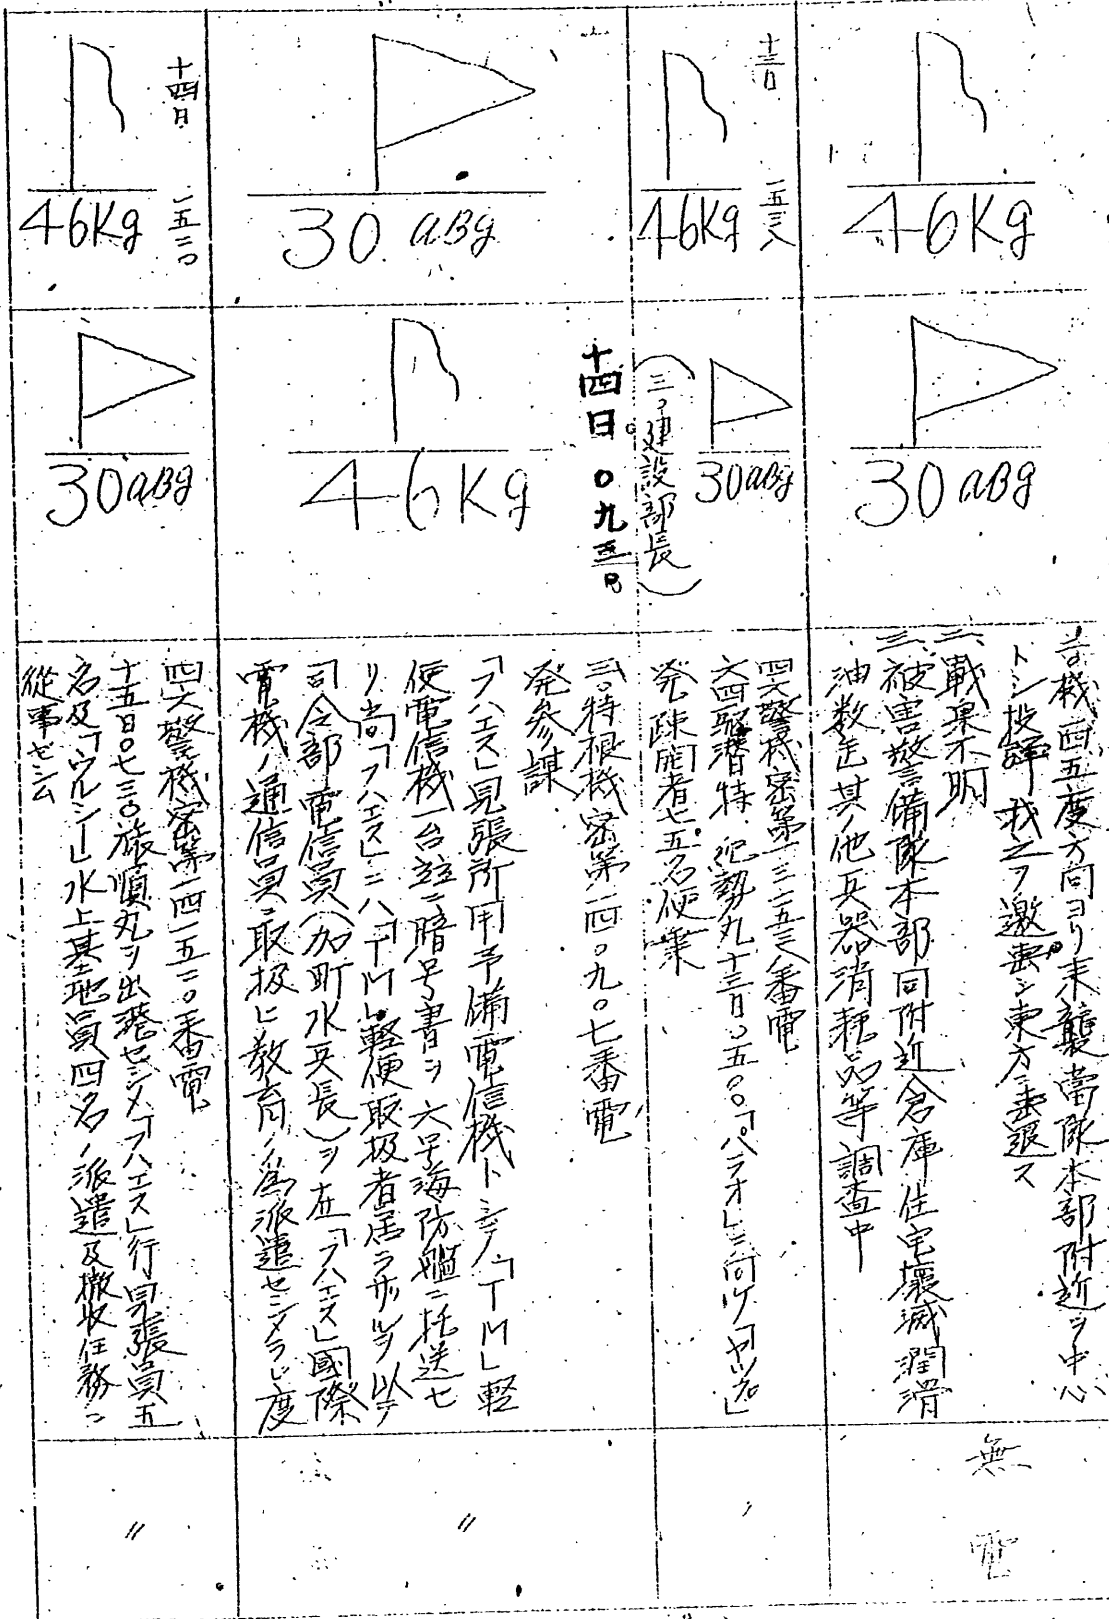 46Kg
30aBg
吉機四五度方向ヨリ来襲當隊本部附近ヲ中心
トシ投弾我之ヲ邀撃シ東方ニ撃退ス
二、戰果不明
三、被害警備隊本部同附近倉庫住宅壞滅潤滑
油数缶其ノ他兵器消耗品等調査中
無電
十三日 一五三八
46Kg
30aBg
(三、建設部長)
四六警機密第一三一五三八番電
六四駆潜特、紀勢丸十三日〇五〇〇「パラオ」ニ向ケ「ヤップ」
発疎開者七五名便乗
十四日〇九三〇
30aBg
46Kg
三〇特根機密第一四〇九〇七番電
発参謀
「フハエス」見張所用予備電信機トシテ「TM」軽
便電信機一台竝ニ暗号書ヲ六号海防艦ニ托送セ
リ尚「フハエス」ニハ「TM」軽便取扱者居ラザルヲ以テ
司令部電信員(加町水兵長)ヲ在「フハエス」國際
電機ノ通信員ニ取扱ヒ教育ノ為派遣セシメラレ度
〃
十四日 一五二〇
46Kg
30aBg
四六警機密第一四一五二〇番電
十五日〇七三〇旅順丸ヲ出港セシメ「フハエス」行見張員五
名及「ウルシー」水上基地員四名ノ派遣及撤収任務ニ
從事セシム
〃